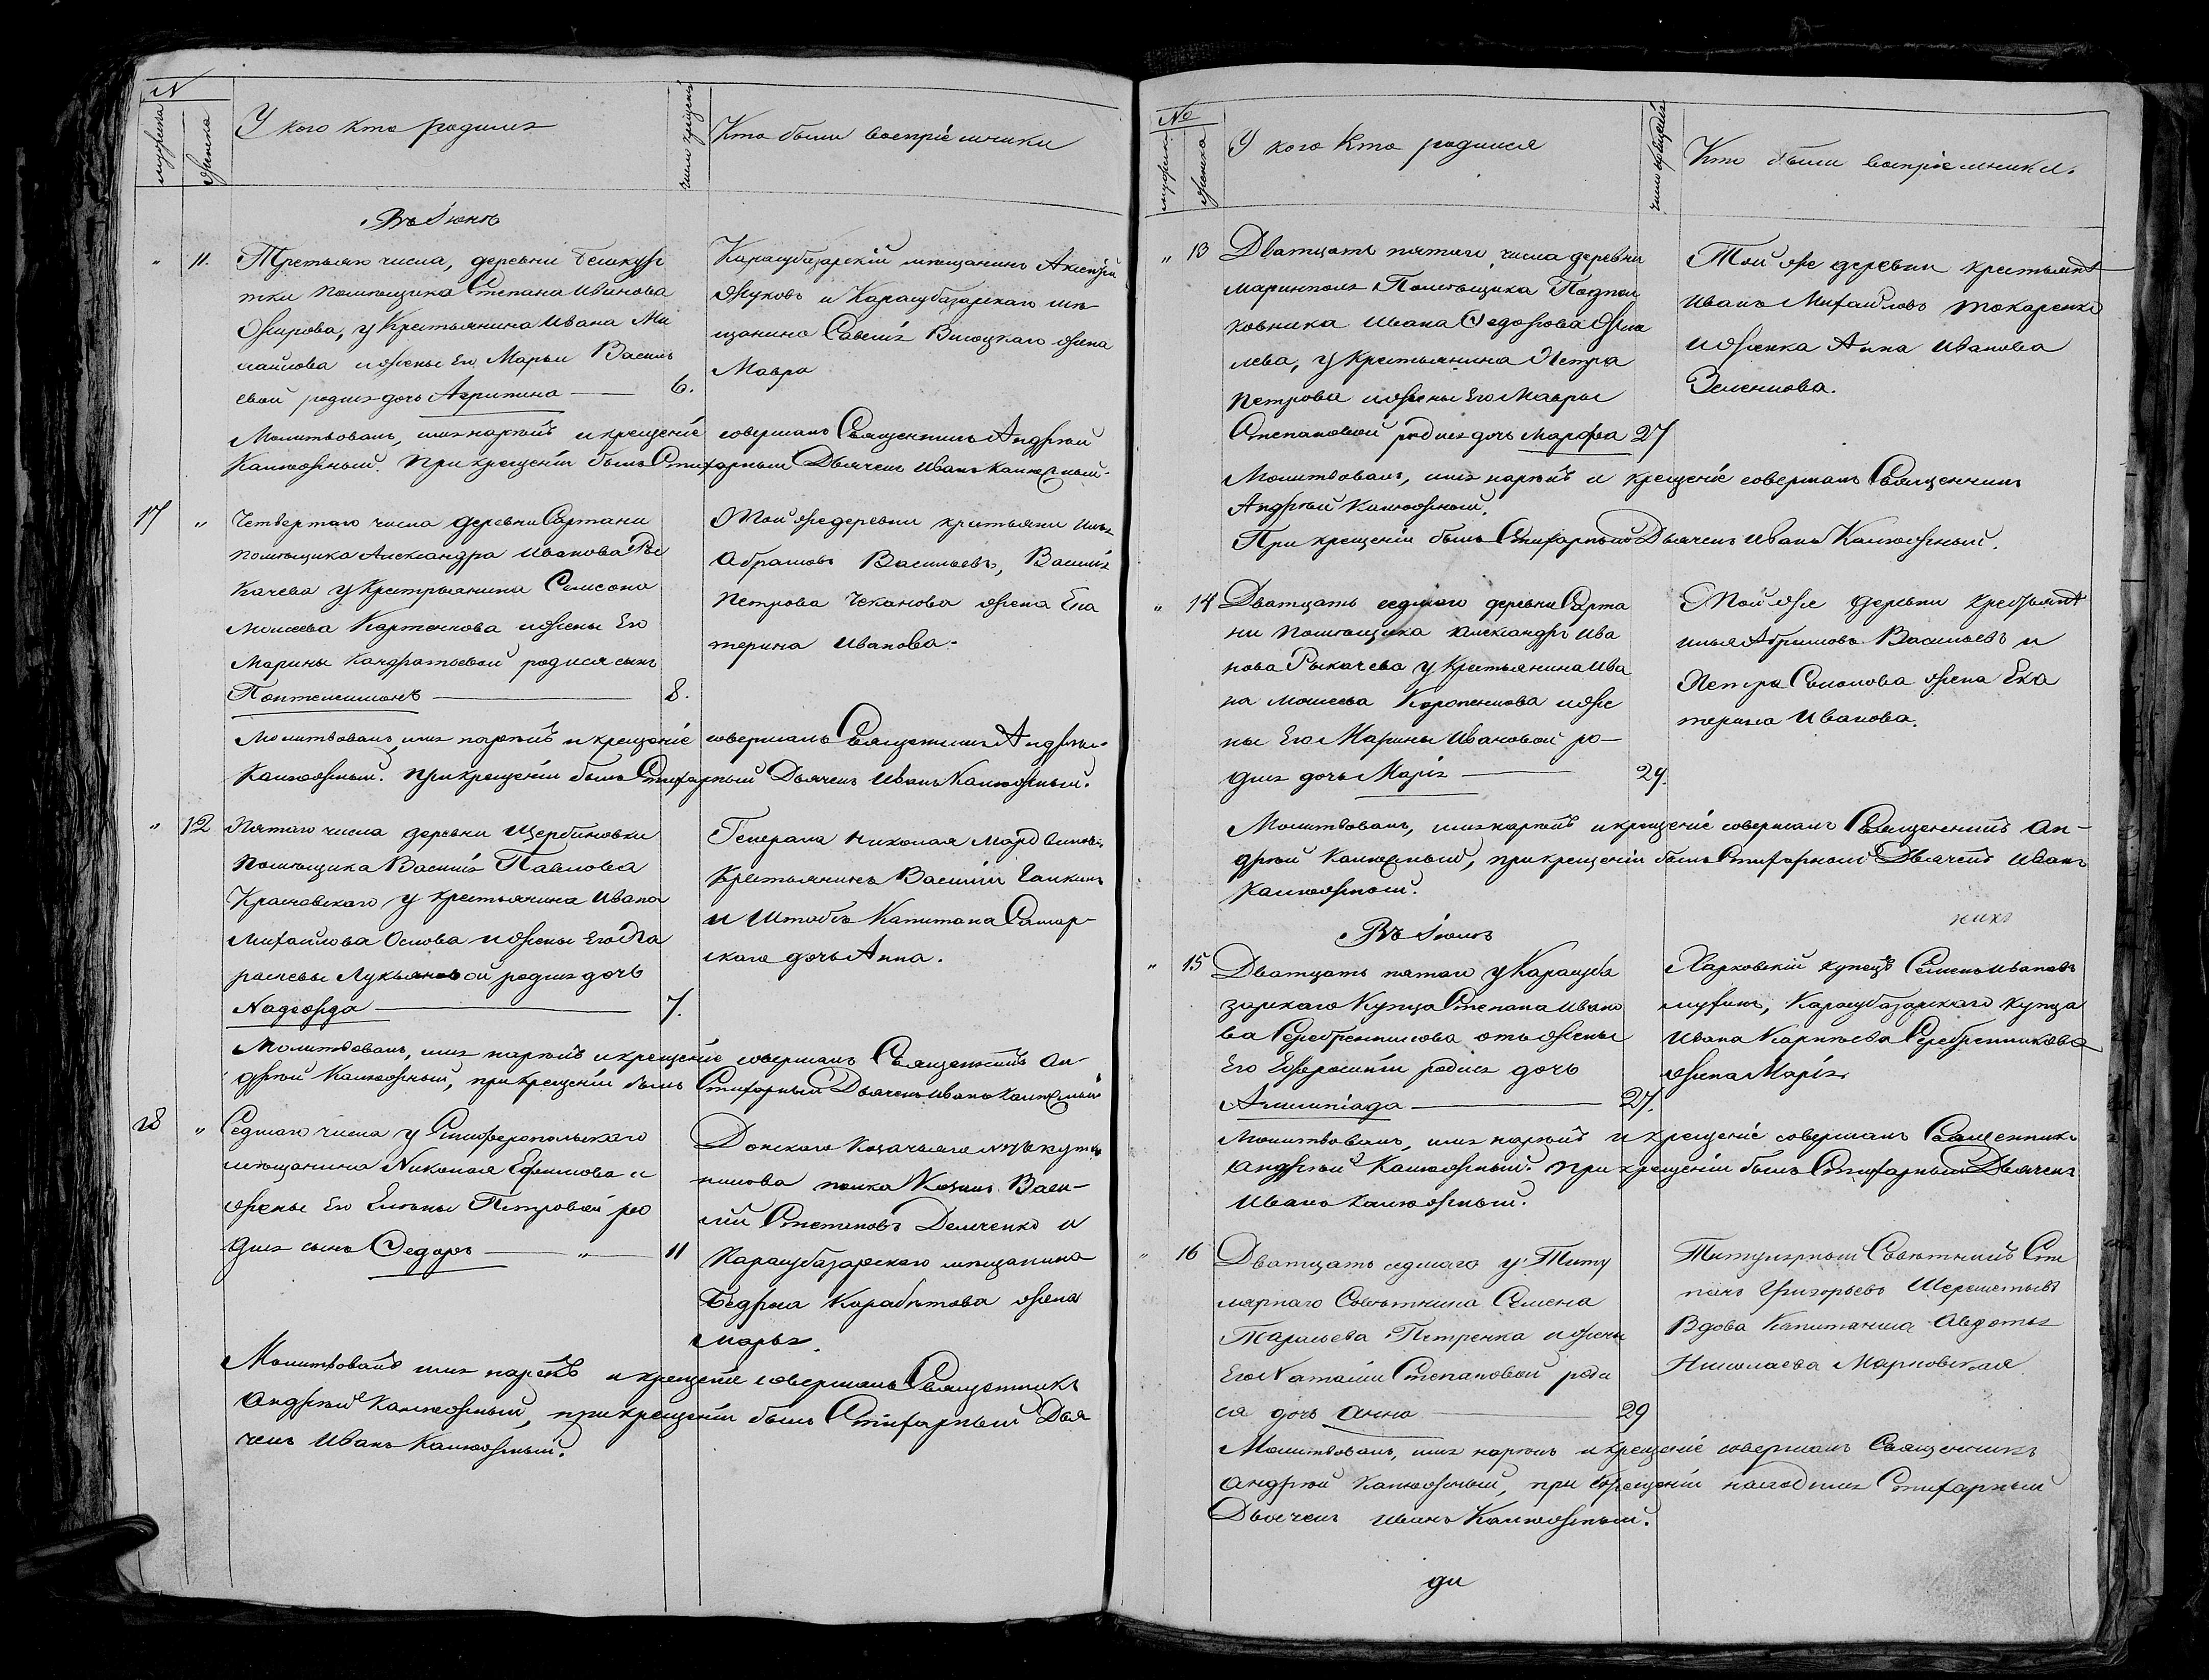 N
мужеска
женска
У кого кто родился
число крещенія
Кто были воспріемники
Въ Іюнѣ
„ 11. Третьяго числа, деревни
тки помѣщика Степана Иванова
у Крестьянина Ивана Ми
хайлова и жены Его Марьи Василь
евой родилась дочь Агрипина — 6.
Карасубазарскій мѣщанинъ Алексѣй
Жуковъ и Карасубазарскаго мѣ
щанина Савелія Высоцкаго жена
Мавра
Молитвовалъ, имя нарѣкъ и крещеніе совершалъ Священникъ Андрѣй
Калюжный. При крещеніи былъ Стихарный Дьячекъ Иванъ Калюжный.
17 „ Четвертаго числа деревни Сартаны
помѣщика Александра Иванова Ры
качева у Крестьянина Самсона
Моисеева Карпенкова и жены Его
Марины Кандратьевой родился сынъ
Понтелеимонъ — 8.
Той же деревни крестьяни Илья
Абрамовъ Васильевъ, Василія
Петрова Чеканова жена Ека
терина Иванова.
Молитвовалъ, имя нарѣкъ и крещеніе совершалъ Священникъ Андрѣй
Калюжный. При крещеніи былъ Стихарный Дьячекъ Иванъ Калюжный.
„ 12 Пятаго числа деревни Щербиновки
помѣщика Василія Павлова
Красовскаго у крестьянина Ивана
Михайлова Осмова и жены Его Па
расневы Лукьяновой родилась дочь
Надежда — 7.
Генерала Николая Мордвинова
Крестьянинъ Василій Галкинъ
и Штабсъ Капитана Самар-
скаго дочь Анна.
Молитвовалъ, имя нарѣкъ и крещеніе совершалъ Священникъ Ан-
дрѣй Калюжный, при крещеніи былъ Стихарный Дьячекъ Иванъ Калюжный
18 „ Седмаго числа у Симферопольскаго
мѣщанина Николая Ефимова и
жены Его Елены Петровой ро
дился сынъ Федоръ — „ — 11
Донскаго Козачьяго
полка Козакъ Васи-
лій Степановъ Демченко и
Карасубазарскаго мѣщанина
жена
Марья.
Молитвовалъ имя нарѣкъ и крещеніе совершалъ Священникъ
Андрѣй Калюжный, при крещеніи былъ Стихарный Дья
чекъ Иванъ Калюжный.
№
мужска
женска
У кого Кто родился
число крещенія
Кто были воспріемники.
„ 13 Дватцать пятаго числа деревни
Маринполь Помѣщика Подпол
ковника Ивана Федорова
лева, у Крестьянина Петра
Петрова и жены Его Мавры
Степановой родилась дочь Марфа 27
Той же деревни крестьянъ
Иванъ Михайловъ Токаренко
и женка Анна Иванова
Зеленцова.
Молитвовалъ, имя нарѣкъ и крещеніе совершалъ Священникъ
Андрѣй Калюжный.
При крещеніи былъ Стихарный Дьячекъ Иванъ Калюжный.
„ 14 Дватцать седмаго деревни Сарта
ны помѣщика Александра Ива
нова Рыкачева у Крестьянина Ива
на Моисеева Карпенкова и же
ны Его Марины Ивановой ро-
дилась дочь Марія — 29.
Той же деревни крестьянъ
Илья Абрамовъ Васильевъ и
Петра Соломова жена Ека
терина Иванова.
Молитвовалъ, имя нарѣкъ и крещеніе совершалъ Священникъ Ан-
дрѣй Калюжный, при крещеніи былъ Стихарный Дьячекъ Иванъ
Калюжный.
Въ Іюлѣ
„ 15 Дватцать пятаго у Карасуба
зарскаго Купца Степана Ивано
ва Серебренникова отъ жены
Его Ефросиніи родилась дочь
Алимпіада — 27.
никъ
Харковскій купецъ Семенъ Ивановъ
Карасубазарскаго купца
Ивана Карпѣева Серебренникова
жена Марія.
Молитвовалъ, имя нарѣкъ и крещеніе совершалъ Священникъ
Андрѣй Калюжный. При крещеніи былъ Стихарный Дьячекъ
Иванъ Калюжный.
„ 16 Дватцать седмаго у Титу
лярнаго Совѣтника Семена
Тарасьева Петренка и жены
Его Наталіи Степановой роди
ся дочь Анна — 29
Титулярный Совѣтникъ Сте
панъ Григорьевъ Шереметьевъ
Вдова Капитанша Авдотья
Николаева Марковская
Молитвовалъ, имя нарѣкъ и крещеніе совершалъ Священникъ
Андрѣй Калюжный, при крещеніи находился Стихарный
Дьячекъ Иванъ Калюжный.
ди